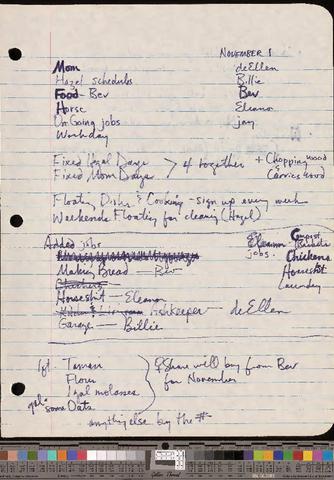 NOVEMBER 1
Mom deEllen
Hazel schedules Billie
Food - Bev Bev
Horse Eleanor
On Going jobs jay
Workday
Fixed Hazel Days > 4 together + Chopping wood
Fixed Mom Days & Carries wood
Floating Dishes & Cooking - sign up every week
Weekends Floating for cleaning (Hazel)
Added jobs
Eleanor - Compost
jobs. Chickens
Making Bread — Bev Horseshit
Laundry
Horseshit — Eleanor
Ashkeeper — deEllen
Garage — Billie
1 qt. Tamari } & Share will buy from Bev
Flour for November
1 gal molasses
some Oats
anything else by the #